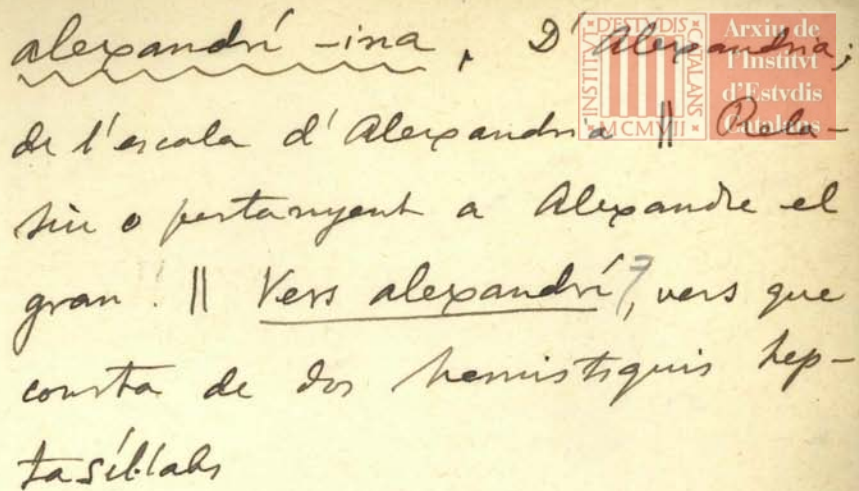 alexandrí -ina, D'Alexandria;
de l'escola d'Alexandria || Rela-
tiu o pertanyent a Alexandre el
gran. || Vers alexandrí, vers que
consta de dos hemistiquis hep-
tasíl·labs
INSTITVT D'ESTVDIS CATALANS
MCMVII
Arxiu de
l'Institvt
d'Estvdis
Catalans